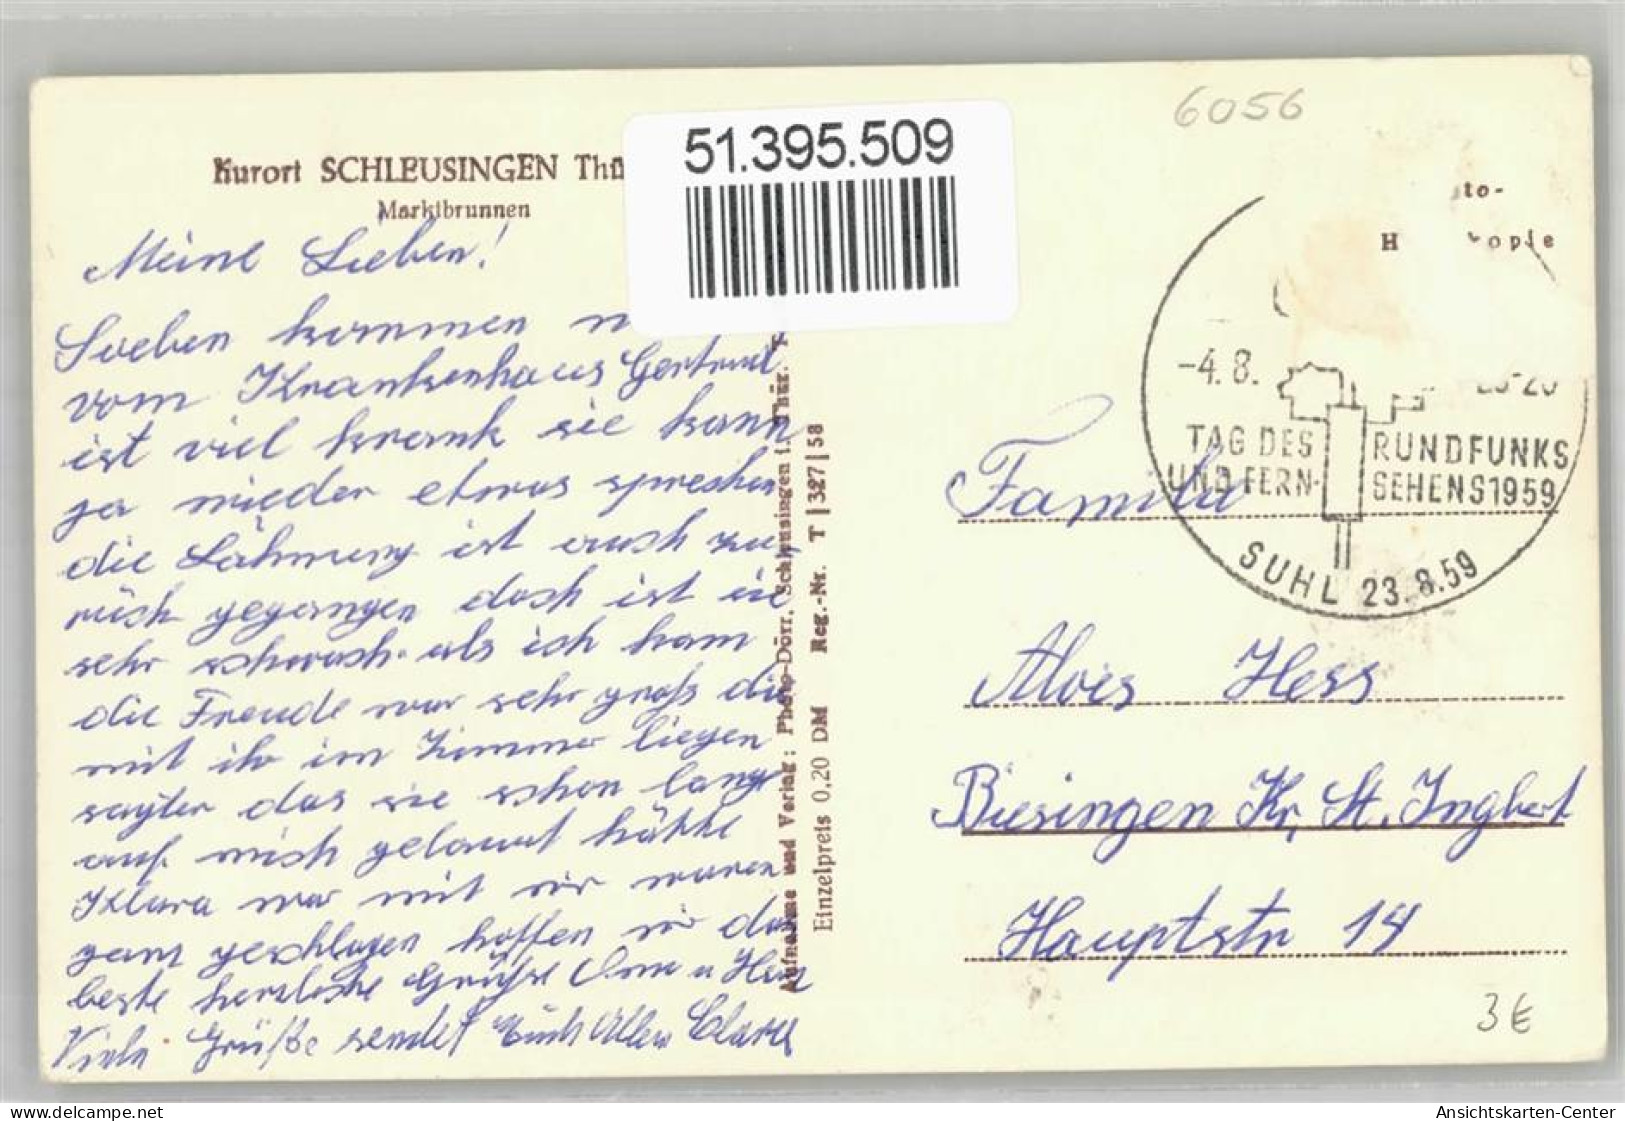 51.395.509
6056
Kurort SCHLEUSINGEN Thü
Marktbrunnen
Meine Lieben!
Soeben kommen
vom Krankenhaus Gertrud
ist viel krank sie kann
ja wieder etwas sprechen
die Lähmung ist auch zu
rück gegangen doch ist sie
sehr schwach. als ich kam
die Freude war sehr groß die
mit ihr im Zimmer liegen
sagten das sie schon lange
auf mich gelauert hätte
Klara war mit wir waren
ganz geschlagen hoffen wir das
beste herzliche Grüße Oma u
Viele Grüße sendet Euch Allen Clara
Aufnahme und Verlag: Photo-Dörr, Schleusingen i. Thür.
Einzelpreis 0,20 DM Reg.-Nr. T|327|58
to-
H kopie
-4.8.
TAG DES RUNDFUNKS
UND FERN- SEHENS 1959
SUHL 23.8.59
Familie
Alois Hess
Biesingen Kr. St. Ingbert
Hauptstr 14
3€
www.delcampe.net
Ansichtskarten-Center